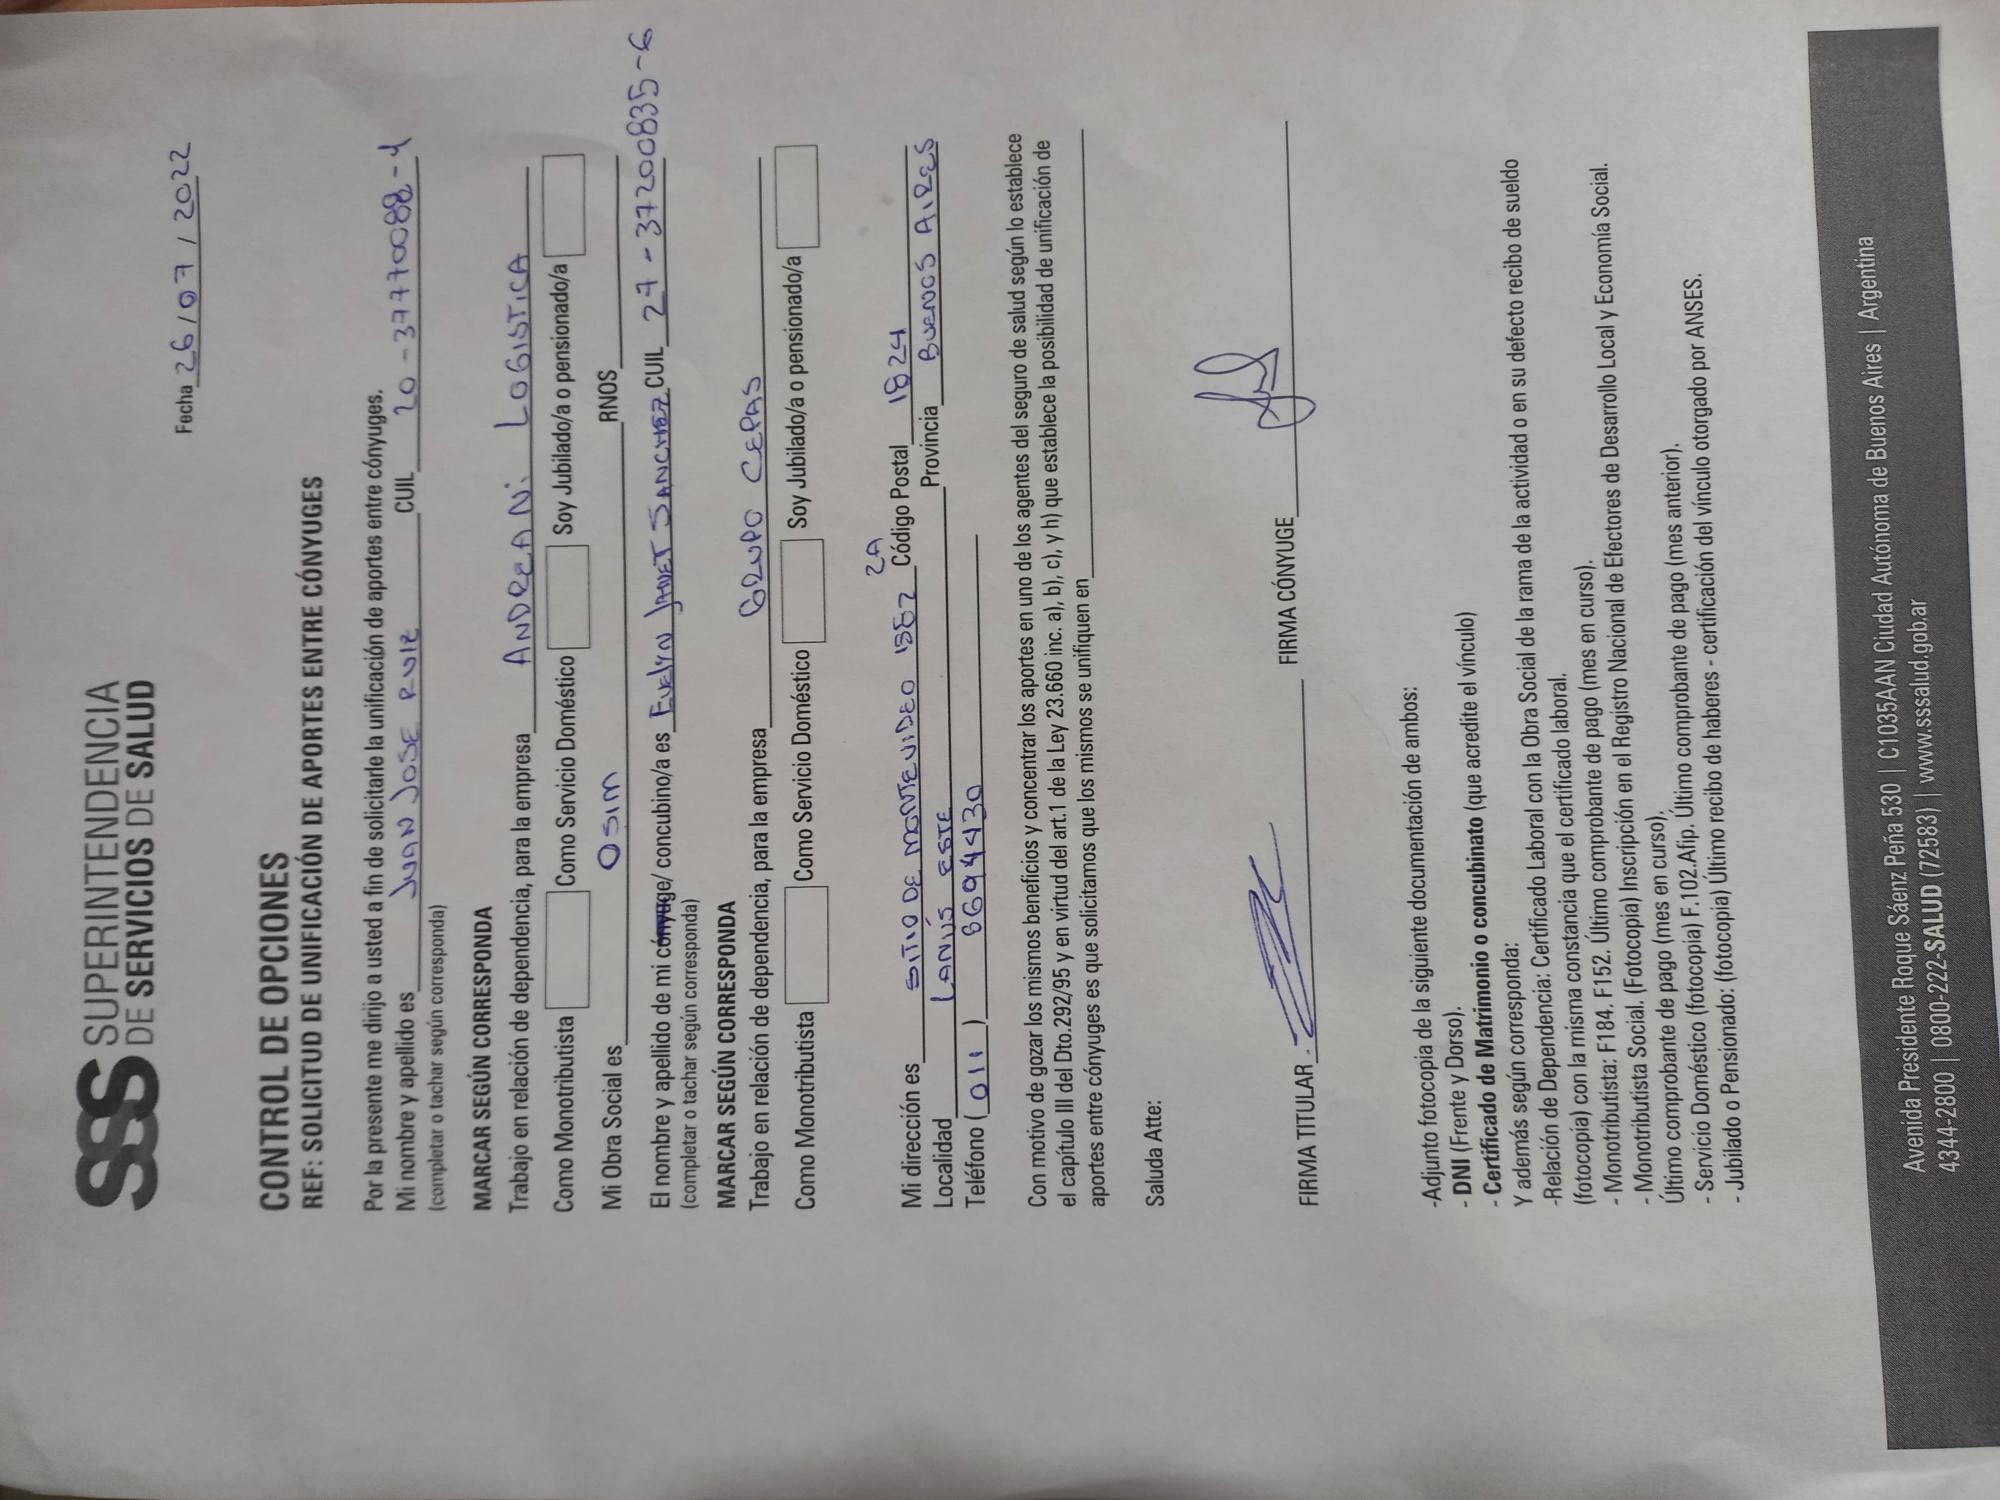 SSS SUPERINTENDENCIA
DE SERVICIOS DE SALUD
Fecha 26/07/2022
CONTROL DE OPCIONES
REF: SOLICITUD DE UNIFICACIÓN DE APORTES ENTRE CÓNYUGES
Por la presente me dirijo a usted a fin de solicitarle la unificación de aportes entre cónyuges.
Mi nombre y apellido es JUAN JOSE RUIZ CUIL 20-37770088-4
(completar o tachar según corresponda)
MARCAR SEGÚN CORRESPONDA
Trabajo en relación de dependencia, para la empresa ANDREANi LOGISTICA
Como Monotributista Como Servicio Doméstico Soy Jubilado/a o pensionado/a
Mi Obra Social es OSIM RNOS
El nombre y apellido de mi cónyuge/ concubino/a es EVELYN JANET SANCHEZ CUIL 27-37200835-6
(completar o tachar según corresponda)
MARCAR SEGÚN CORRESPONDA
Trabajo en relación de dependencia, para la empresa GRUPO CEPAS
Como Monotributista Como Servicio Doméstico Soy Jubilado/a o pensionado/a
Mi dirección es SITIO DE MONTEVIDEO 2A Código Postal 1824
Localidad LANÚS ESTE Provincia BUENOS AIRES
Teléfono (011)
Con motivo de gozar los mismos beneficios y concentrar los aportes en uno de los agentes del seguro de salud según lo establece
el capítulo III del Dto.292/95 y en virtud del art.1 de la Ley 23.660 inc. a), b), c), y h) que establece la posibilidad de unificación de
aportes entre cónyuges es que solicitamos que los mismos se unifiquen en
Saluda Atte:
FIRMA TITULAR FIRMA CÓNYUGE
-Adjunto fotocopia de la siguiente documentación de ambos:
- DNI (Frente y Dorso).
- Certificado de Matrimonio o concubinato (que acredite el vínculo)
Y además según corresponda:
-Relación de Dependencia: Certificado Laboral con la Obra Social de la rama de la actividad o en su defecto recibo de sueldo
(fotocopia) con la misma constancia que el certificado laboral.
- Monotributista: F184. F152. Último comprobante de pago (mes en curso).
- Monotributista Social. (Fotocopia) Inscripción en el Registro Nacional de Efectores de Desarrollo Local y Economía Social.
Último comprobante de pago (mes en curso).
- Servicio Doméstico (fotocopia) F.102.Afip. Último comprobante de pago (mes anterior).
- Jubilado o Pensionado: (fotocopia) Último recibo de haberes - certificación del vínculo otorgado por ANSES.
Avenida Presidente Roque Sáenz Peña 530 | C1035AAN Ciudad Autónoma de Buenos Aires | Argentina
4344-2800 | 0800-222-SALUD (72583) | www.sssalud.gob.ar